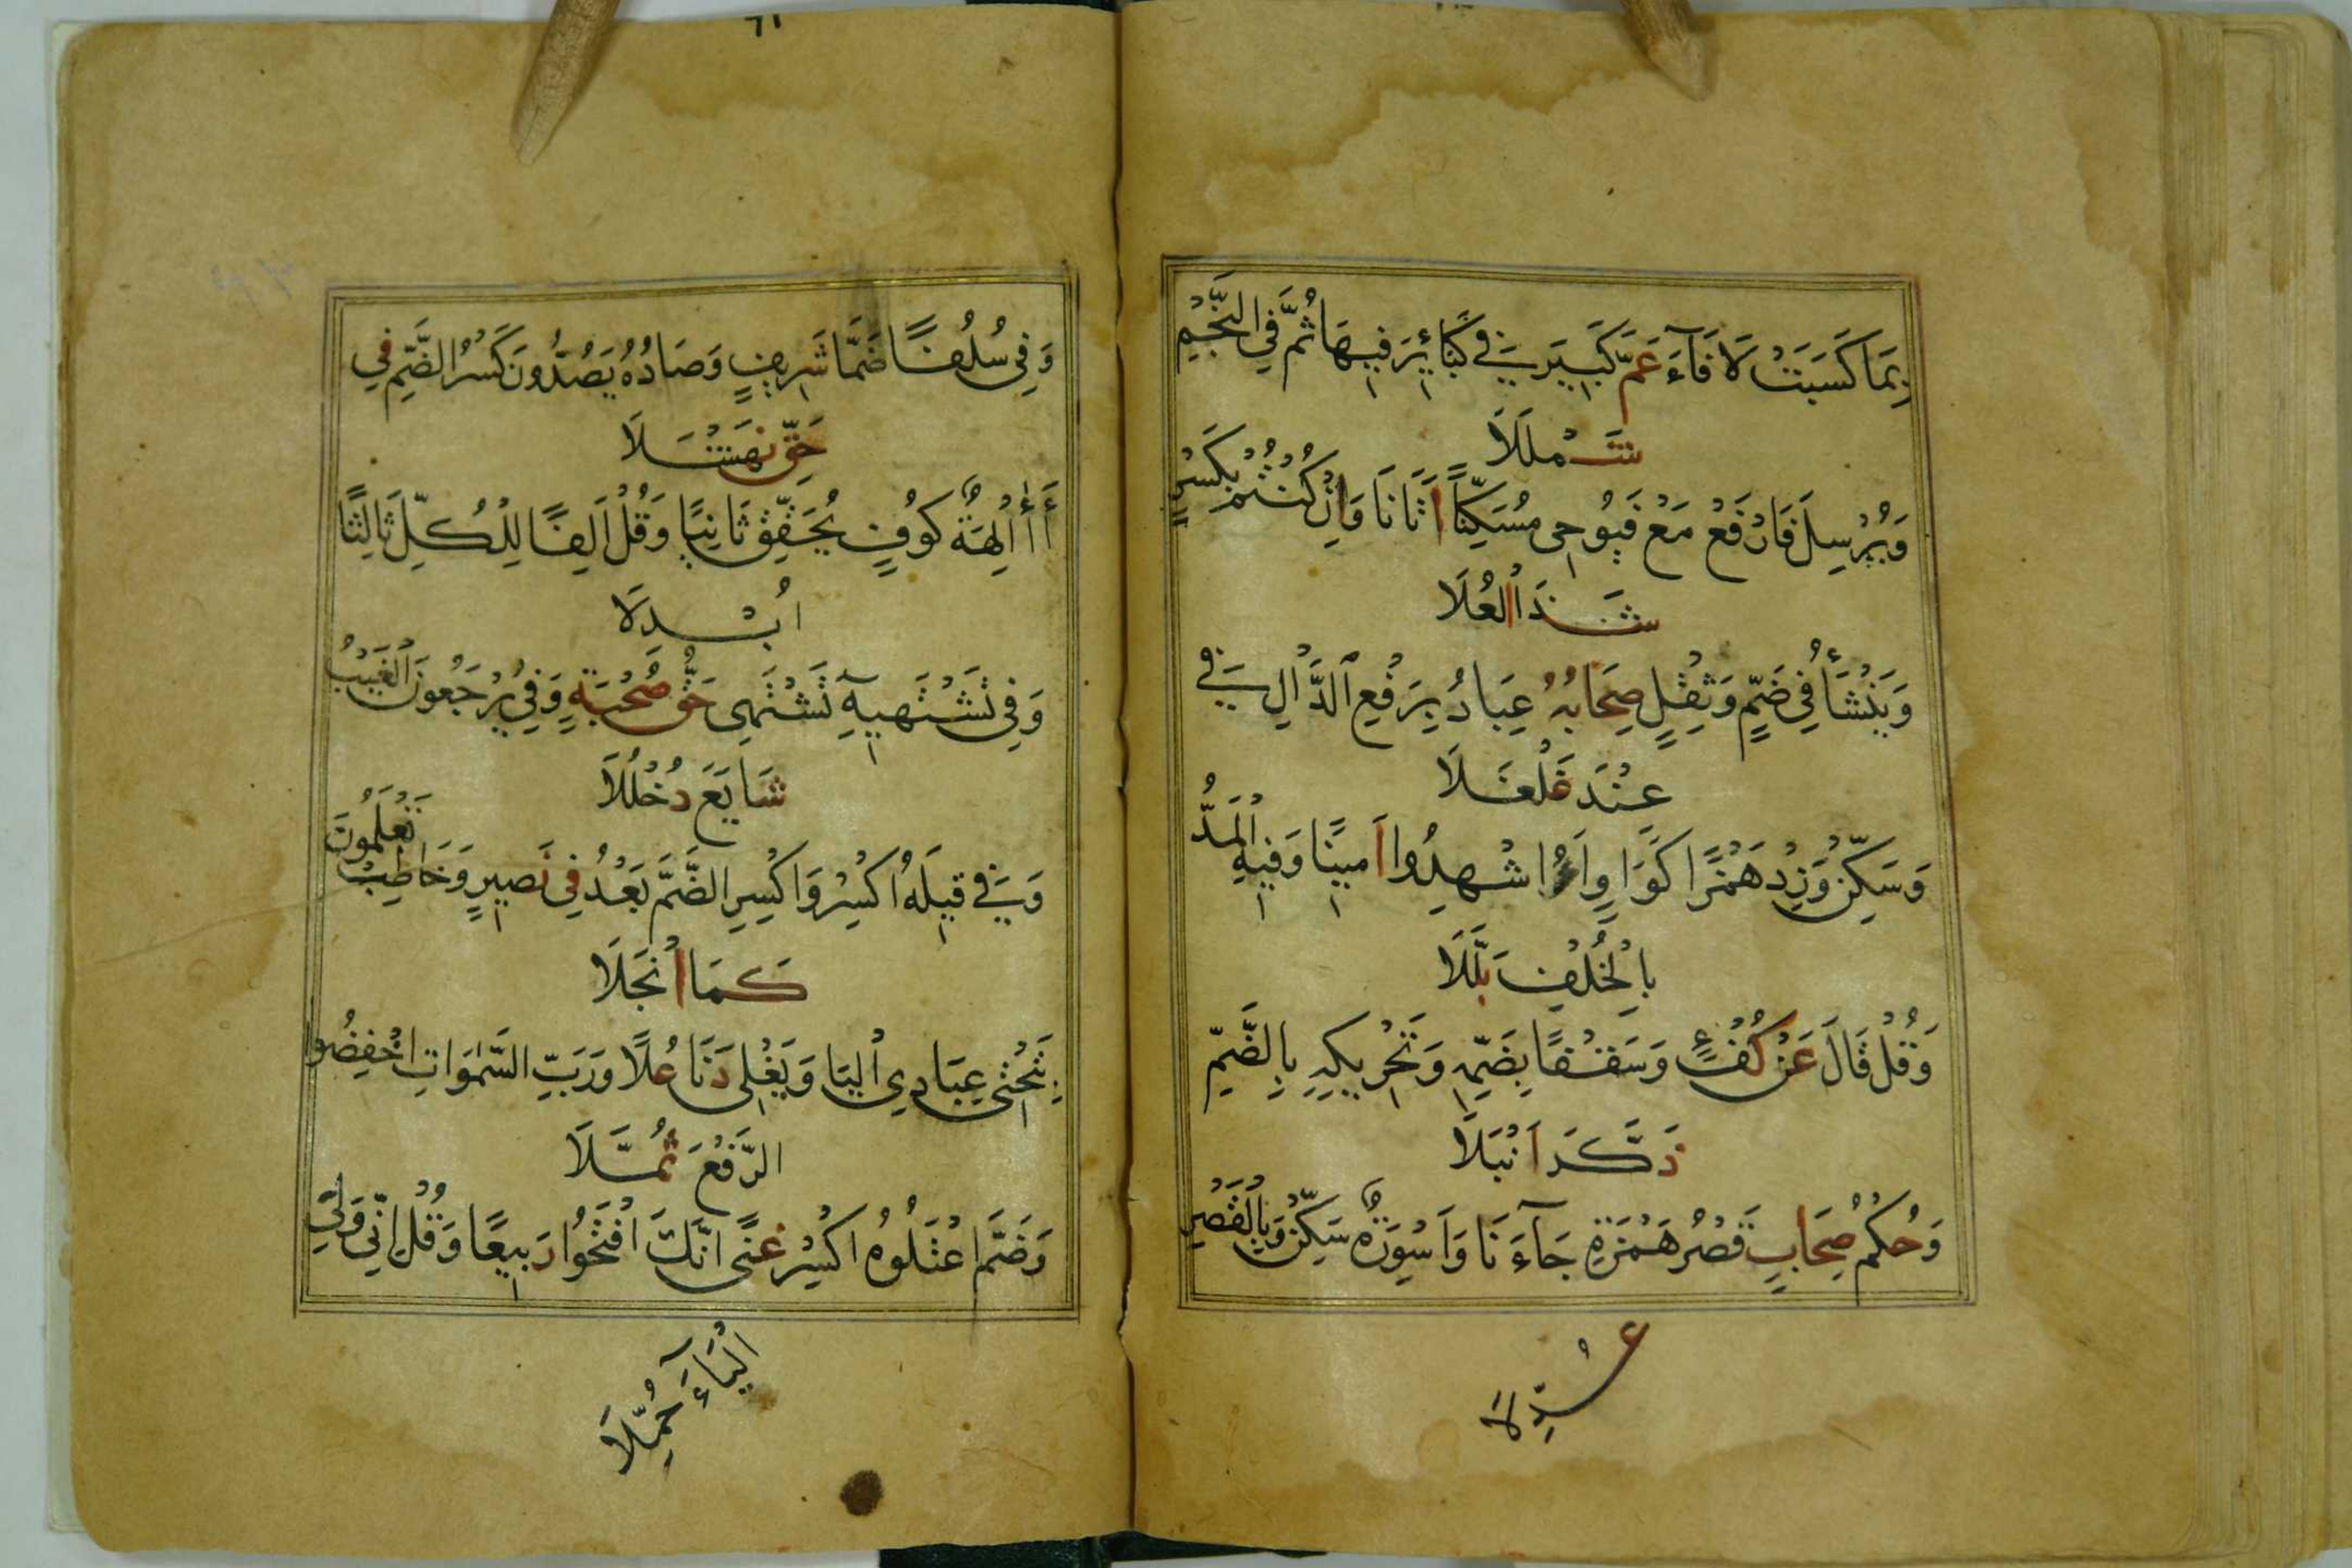 بِمَا كَسَبَتْ لَا فَآءَ عَمَّ كَبِيرَ فِي كَبَائِرَ فِيهَا ثُمَّ فِي النَّجْمِ
شَمْلَلَا
وَيُرْسِلَ فَارْفَعْ مَعْ فَيُوحِي مُسَكِّنًا أَتَانَا وَإِنْ كُنْتُمْ بِكَسْرٍ
شَذَا الْعُلَا
وَيَنْشَأُ فِي ضَمٍّ وَثِقْلٍ صِحَابُهُ عِبَادُ بِرَفْعِ الدَّالِ فِي
عِنْدَ غَلْغَلَا
وَسَكِّنْ وَزِدْ هَمْزًا كَوَاوٍ أَؤُاشْهِدُوا أَمِينًا وَفِيهِ الْمَدُّ
بِالْخُلْفِ بَلَّلَا
وَقُلْ قَالَ عَنْ كُفْءٍ وَسَقْفًا بِضَمِّهِ وَتَحْرِيكِهِ بِالضَّمِّ
ذَكَّرَ أَنْبَلَا
وَحُكْمُ صِحَابٍ قَصْرُ هَمْزَةِ جَآءَنَا وَأَسْوِرَةٌ سَكِّنْ وَبِالْقَصْرِ
عُدِّلَا
٦٦
وَفِي سُلُفًا ضَمَّا شَرِيفٍ وَصَادُهُ يَصُدُّونَ كَسْرُ الضَّمِّ فِي
حَقِّ نَهْشَلَا
أَأٰلِهَةٌ كُوفٍ يُحَقِّقُ ثَانِيًا وَقُلْ أَلِفًا لِلْكُلِّ ثَالِثًا
أُبْدِلَا
وَفِي تَشْتَهِيهِ تَشْتَهِي حَقُّ صُحْبَةٍ وَفِي يُرْجَعُونَ الْغَيْبُ
شَايَعَ دُخْلُلَا
وَفِي قِيلَهُ اكْسِرْ وَاكْسِرِ الضَّمَّ بَعْدُ فِي نَصِيرٍ وَخَاطِبْ تَعْلَمُونَ
كَمَا انْجَلَا
بِتَحْتِي عِبَادِي الْيَا وَيَغْلِي دَنَا عُلًا وَرَبِّ السَّمٰوَاتِ اخْفِضُوا
الرَّفْعَ ثُمَّلَا
وَضَمَّ اعْتِلُوهُ اكْسِرْ غِنًى أَنَّكَ افْتَحُوا رَبِيعًا وَقُلْ إِنِّي وَلِي
الْيَاءَ حُمِّلَا